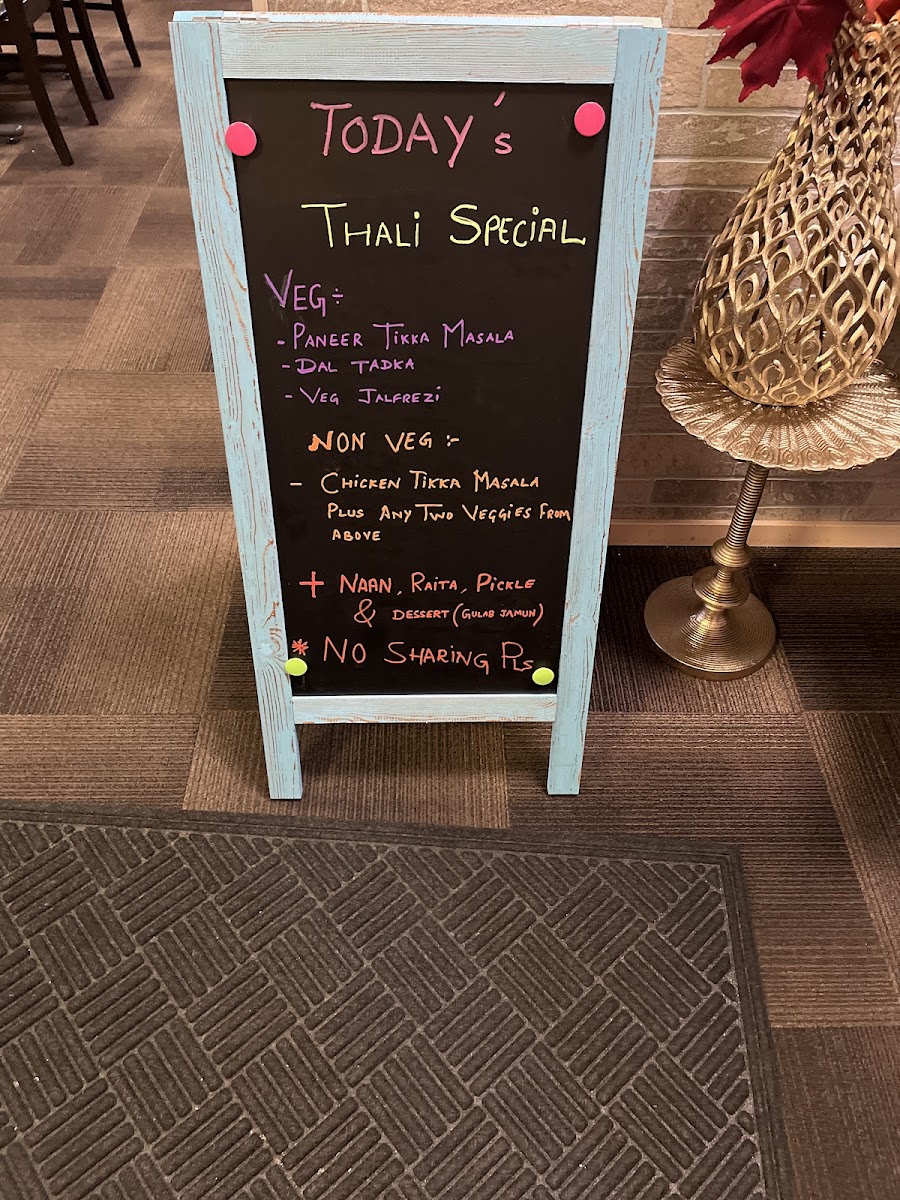 TODAY's
THALi SPECiAL
VEG÷
- PANEER TIKKA MASALA
- DAL TADKA
- VEG JALFREZi
NON VEG :-
- CHICKEN TIKKA MASALA
PLUS ANY TWO VEGGIES FROM
ABOVE
+ NAAN, RAITA, PICKLE
& DESSERT (GULAB JAMUN)
* NO SHARING PLS